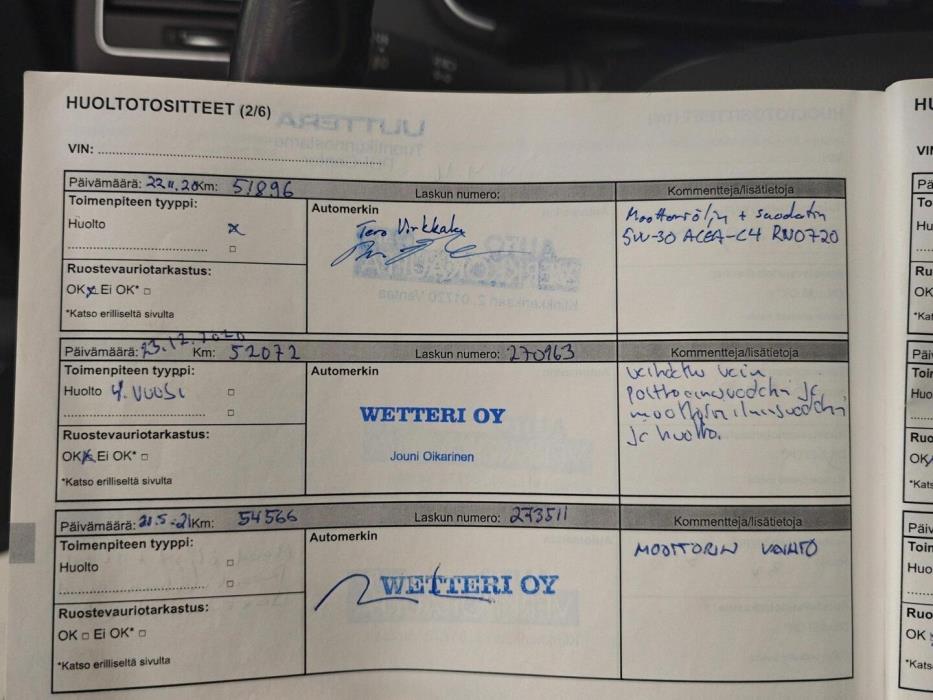 HUOLTOTOSITTEET (2/6)
VIN:
Päivämäärä: 22.11.20 Km: 51896 Laskun numero: Kommentteja/lisätietoja
Toimenpiteen tyyppi:
Huolto x
Automerkin
Tero Virkkala
Moottoriöljyn + suodatin
5W-30 ACEA-C4 RN0720
Ruostevauriotarkastus:
OK x Ei OK* □
*Katso erilliseltä sivulta
Päivämäärä: 23.12.2020 Km: 52072 Laskun numero: 270963 Kommentteja/lisätietoja
Toimenpiteen tyyppi:
Huolto 4. VUOSI □
Automerkin
WETTERI OY
Jouni Oikarinen
vaihdettu vain
polttoainesuodatin ja
moottorin ilmansuodatin
ja huolto.
Ruostevauriotarkastus:
OK x Ei OK* □
*Katso erilliseltä sivulta
Päivämäärä: 21.5-21 Km: 54566 Laskun numero: 273511 Kommentteja/lisätietoja
Toimenpiteen tyyppi:
Huolto □
Automerkin
WETTERI OY
MOOTTORIN VAIHTO
Ruostevauriotarkastus:
OK □ Ei OK* □
*Katso erilliseltä sivulta